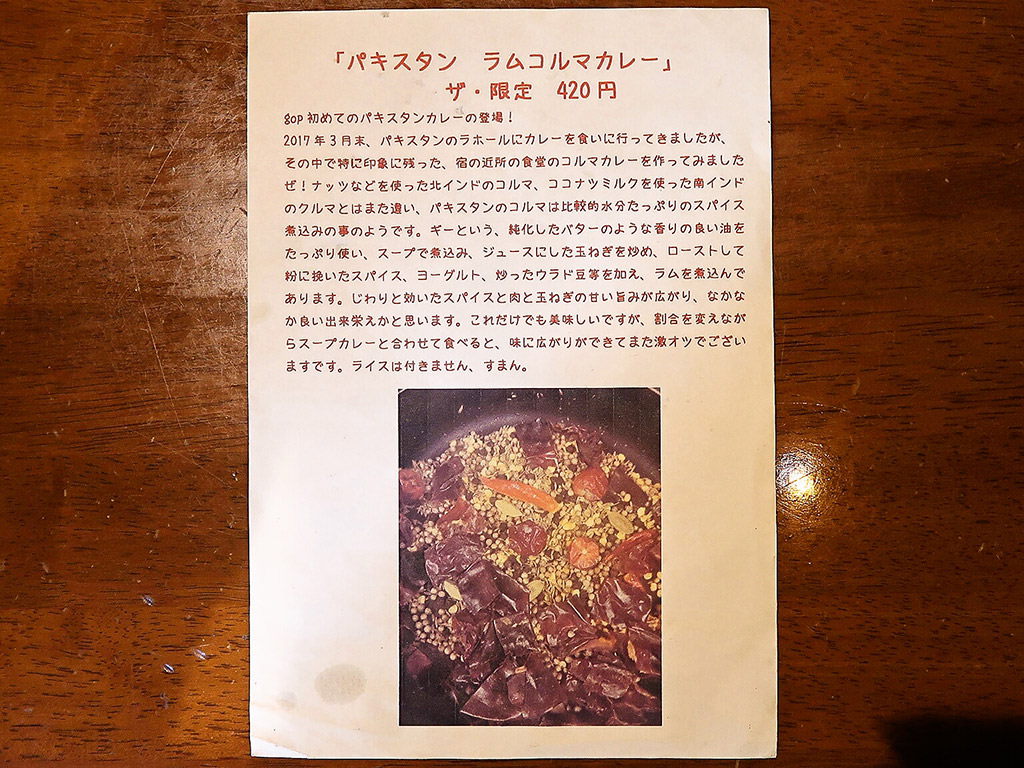 「パキスタン　ラムコルマカレー」
ザ・限定　420円
gop 初めてのパキスタンカレーの登場！
2017年3月末、パキスタンのラホールにカレーを食いに行ってきましたが、
その中で特に印象に残った、宿の近所の食堂のコルマカレーを作ってみました
ぜ！ナッツなどを使った北インドのコルマ、ココナツミルクを使った南インド
のクルマとはまた違い、パキスタンのコルマは比較的水分たっぷりのスパイス
煮込みの事のようです。ギーという、純化したバターのような香りの良い油を
たっぷり使い、スープで煮込み、ジュースにした玉ねぎを炒め、ローストして
粉に挽いたスパイス、ヨーグルト、炒ったウラド豆等を加え、ラムを煮込んで
あります。じわりと効いたスパイスと肉と玉ねぎの甘い旨みが広がり、なかな
か良い出来栄えかと思います。これだけでも美味しいですが、割合を変えなが
らスープカレーと合わせて食べると、味に広がりができてまた激オツでござい
ますです。ライスは付きません、すまん。